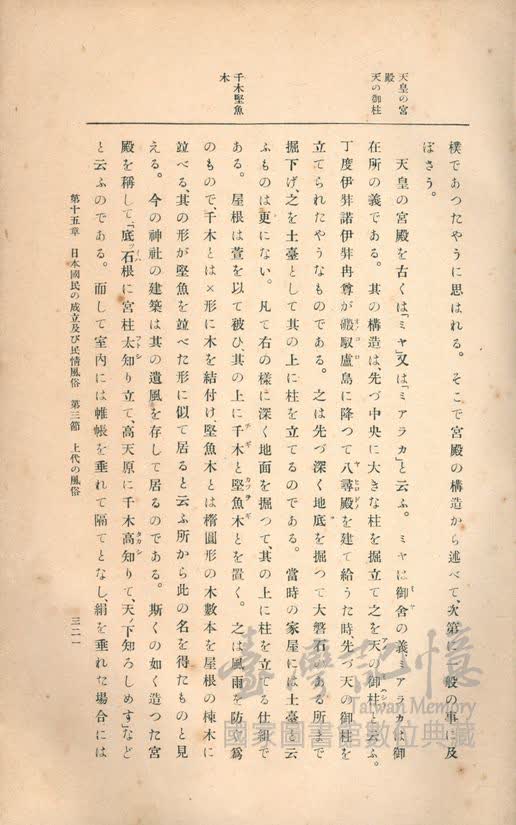 天皇の宮
殿
天の御柱
千木堅魚
木
樸であつたやうに思はれる。そこで宮殿の構造から述べて、次第に一般の事に及
ぼさう。
天皇の宮殿を古くは「ミヤ」又は「ミアラカ」と云ふ。ミヤは御舍の義、ミアラカは御
在所の義である。其の構造は、先づ中央に大きな柱を掘立て之を天の御柱と云ふ。
丁度伊弉諾伊弉冉尊が磤馭盧島に降つて八尋殿を建て給うた時、先づ天の御柱を
立てられたやうなものである。之は先づ深く地底を掘つて大磐石のある所まで
掘下げ、之を土臺として其の上に柱を立てるのである。當時の家屋には土臺と云
ふものは更にない。凡て右の樣に深く地面を掘つて、其の上に柱を立てる仕組で
ある。屋根は萱を以て被ひ、其の上に千木と堅魚木とを置く。之は風雨を防ぐ爲
のもので、千木とは×形に木を結付け、堅魚木とは橢圓形の木數本を屋根の棟木に
竝べる、其の形が堅魚を竝べた形に似て居ると云ふ所から此の名を得たものと見
える。今の神社の建築は其の遺風を存して居るのである。斯くの如く造つた宮
殿を稱して、「底ッ石根に宮柱太知り立て、高天原に千木高知りて、天ノ下知ろしめす」など
と云ふのである。而して室內には帷帳を垂れて隔てとなし、絹を垂れた場合には
第十五章 日本國民の成立及び民情風俗 第三節 上代の風俗
三二一
臺灣記憶
Taiwan Memory
國家圖書館數位典藏